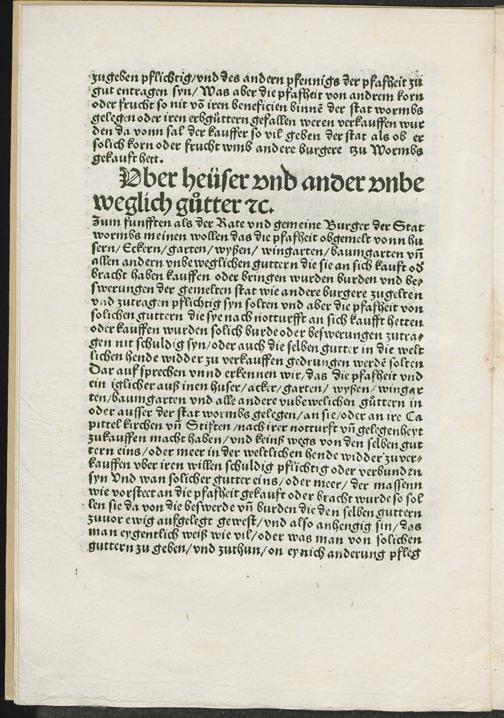 zugeben pflichtig/vnd des andern pfennigs der pfafheit zů
gut entragen syn/Was aber die pfafheit von andrem korn
oder frucht so nit vō iren beneficien binnē der stat wormbs
gelegen oder iren erbgüttern gefallen weren verkauffen wur
den da vonn sal der kauffer so vil geben der stat als ob er
solich korn oder frucht vmb andere burgere tzu Wormbs
gekauft hett.
Vber heüser vnd ander vnbe
weglich gůtter ꝛc.
Zum funfften als der Rate vnd gemeine Burger der Stat
wormbs meinen wollen das die pfafheit obgemelt vonn hu
sern/Eckern/garten/wyßen/wingarten/baumgarten vn̄
allen andern vnbeweglichen guttern die sie an sich kauft oď
bracht haben kauffen oder bringen wurden burden vnd be/
swerungen der gemelten stat wie andere burgere zugelten
vnd zutragen pflichtig syn solten vnd aber die pfafheit von
solichen guttern die sye nach notturfft an sich kaufft hetten
oder kauffen wurden solich burde oder beswerungen zutra/
gen nit schuldig syn/oder auch die selben gutter in die welt
lichen hende widder zu verkauffen gedrungen werdē solten
Dar auf sprechen vnnd erkennen wir/das die pfafheit vnd
ein iglicher auß inen huser/acker/garten/wyßen/wingar
ten/baumgarten vnd alle andere vnbewelichen güttern in
oder ausser der stat wormbs gelegen/an sie/oder an ire Ca
pittel kirchen vn̄ Stifften/nach irer notturft vn̄ gelegenheyt
zukauffen macht haben/vnd keinß wegs von den selben gut
tern eins/oder meer in der weltlichen hende widder zuver/
kauffen vber iren willen schuldig pflichtig oder verbundēn
syn Vnd wan solicher gutter eins/oder meer/der massenn
wie vorsteet an die pfafheit gekauft oder bracht wurde so sol
len sie da von die beswerde vn̄ burden die den selben guttern
zuvor ewig aufgelegt gewest/vnd also anhengig sin/das
man eygentlich weiß wie vil/oder was man von solichen
guttern zu geben/vnd zuthun/on eynich anderung pfleg